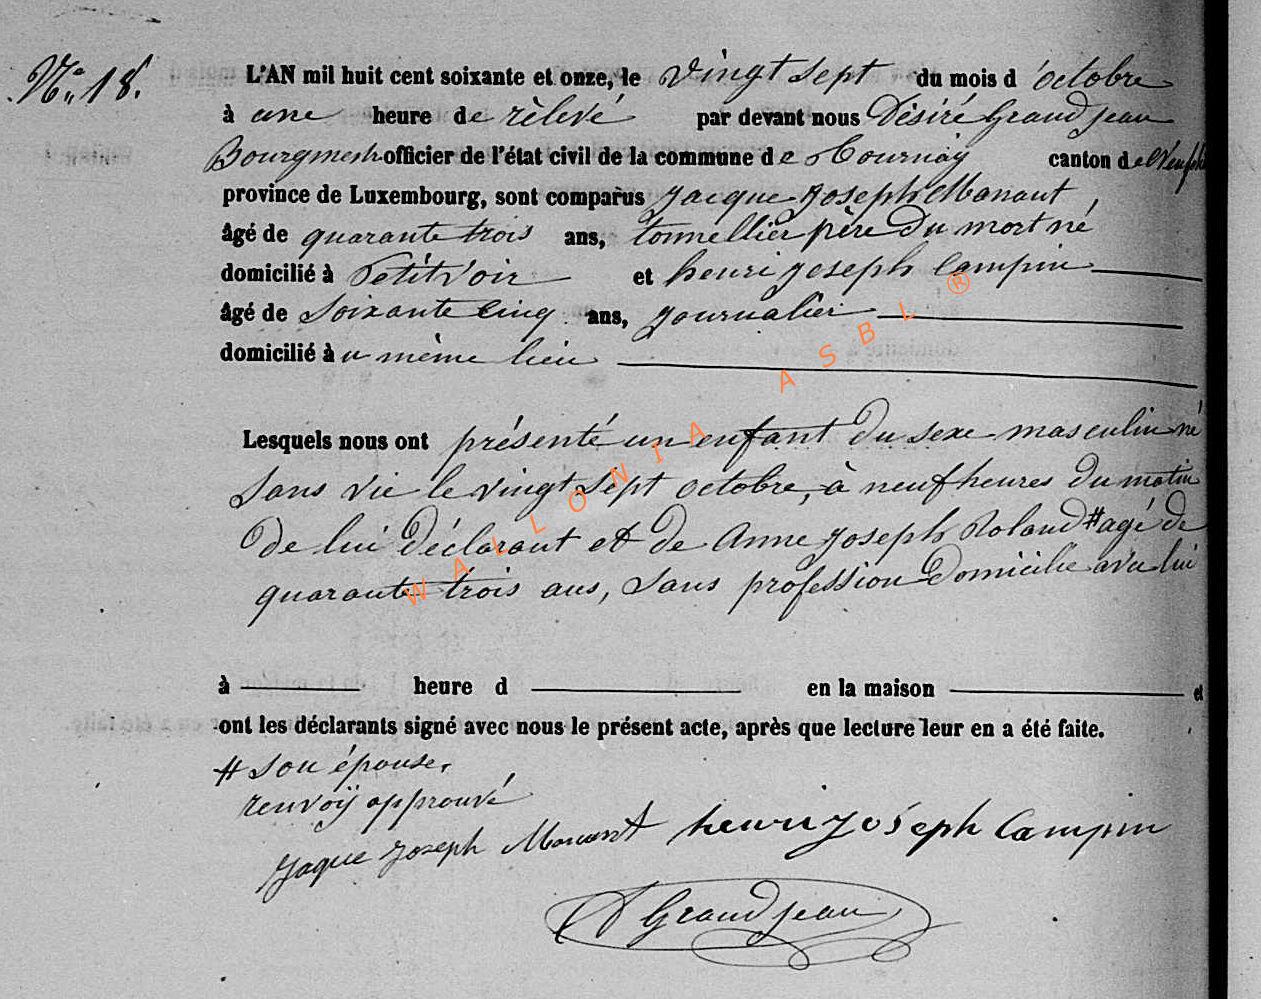 N° 18.
L'AN mil huit cent soixante et onze, le vingt sept du mois d'octobre
à une heure de rèlevé par devant nous Désiré Grandjean
Bourgmestre officier de l'état civil de la commune de Tournay canton de Neufch
province de Luxembourg, sont comparus Jacque Joseph Manant,
âgé de quarante trois ans, tonnellier père du mort né
domicilié à Petitvoir et henri joseph Campin
âgé de soixante cinq ans, journalier
domicilié au même lieu
Lesquels nous ont présenté un enfant du sexe masculin né
sans vie le vingt sept octobre, à neuf heures du matin
de lui déclarant et de Anne joseph Roland # agé de
quarante trois ans, sans profession domicilié avec lui
à heure d en la maison et
ont les déclarants signé avec nous le présent acte, après que lecture leur en a été faite.
# son épouse,
renvoÿ approuvé
Jaque Joseph Manant henri joséph Campin
D Grandjean
WALLONIA ASBL ®